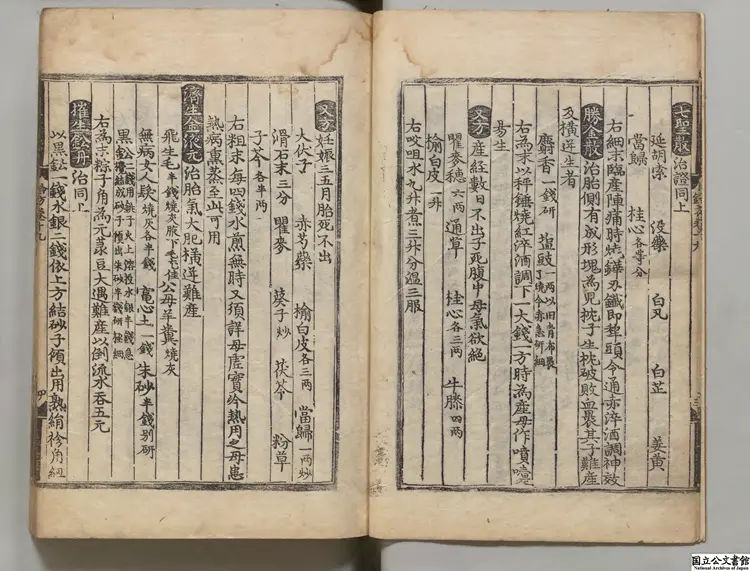 七聖散 治證同上
延胡索 没藥 白凡 白芷 姜黄
當歸 桂心各等分
右細末臨產陣痛時燒鏵刃鐵即犁頭令通赤淬酒調神效
勝金散 治胎側有成形塊為児枕子生枕破敗血裹其子難産
及横逆生者
麝香一錢研 塩豉一兩以旧青布裹
了燒令赤急研細
右為末以秤錘燒紅淬酒調下一大錢一方時為産母作噴嚏
易生
又方 産經數日不出子死腹中母氣欲絕
瞿麥穗六兩 通草 桂心各三兩 牛膝四兩
榆白皮一升
右㕮咀水九升煮三升分溫三服
又方 妊娠三五月胎死不出
大伏子 赤芍藥 榆白皮各三兩 當歸一兩炒
滑石末三分 瞿麥 葵子炒 茯苓 粉草
子芩各半兩
右粗末每四錢水煎無時又須詳母虛實冷熱用之母患
熱病薫蒸至此可用
治胎氣大肥横逆難産
無病女人髮燒灰各半錢 竈心土一錢 朱砂半錢別研
右為末粽子角為元菉豆大遇難産以倒流水吞五元
催生 丹 治同上
以黑鈆一錢水銀二錢依上方結砂子傾出用熟絹袗角紐
国立公文書館
National Archives of Japan